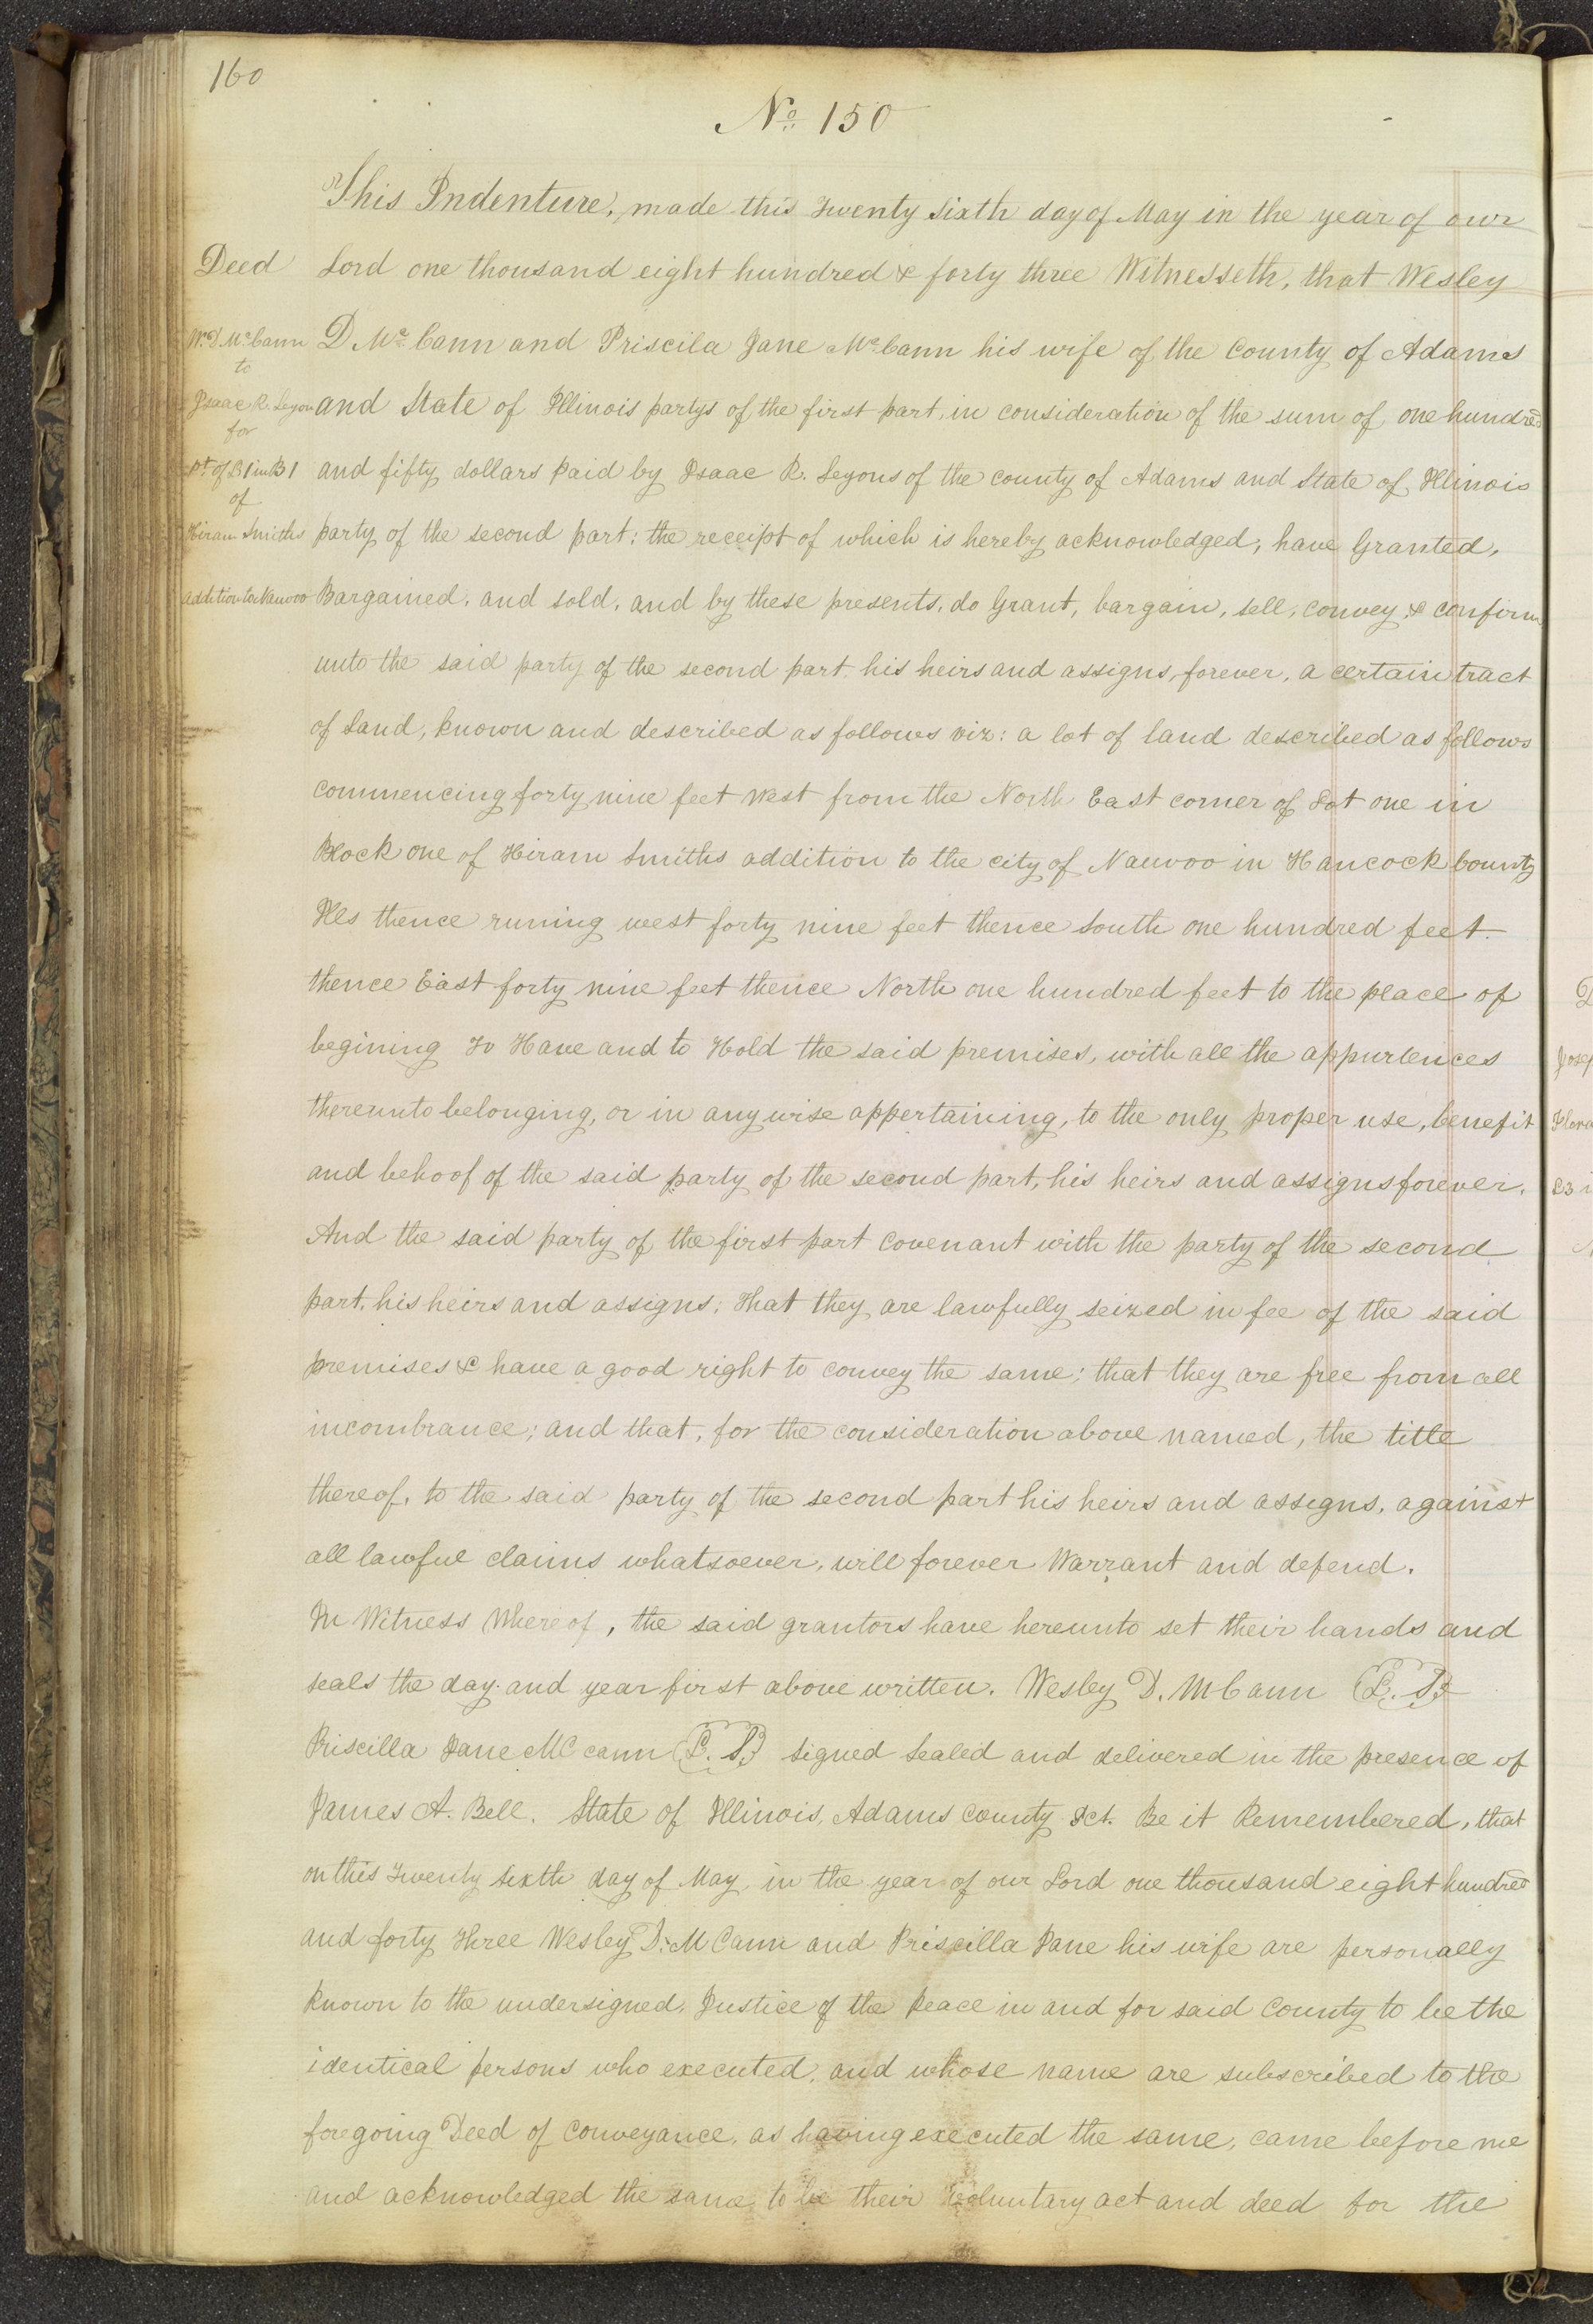 160
No. 150
This Indenture, made this Twenty Sixth day of May in the year of our
Deed Lord one thousand eight hundred & forty three Witnesseth, that Wesley
W. D. McCann D McCann and Priscila Jane McCann his wife of the County of Adams
to
Isaac R. Leyons and State of Illinois partys of the first part, in consideration of the sum of one hundred
for
pt of L1 in B1 and fifty dollars paid by Isaac R. Leyons of the county of Adams and State of Illinois
of
Hiram Smiths party of the second part: the receipt of which is hereby acknowledged, have Granted,
addition to Nauvoo Bargained, and sold, and by these presents, do Grant, bargain, sell, convey, & confirm
unto the said party of the second part, his heirs and assigns, forever, a certain tract
of Land, known and described as follows viz: a lot of land described as follows
commencing forty nine feet west from the North East corner of Lot one in
Block one of Hiram Smiths addition to the city of Nauvoo in Hancock County
Ills thence runing west forty nine feet thence South one hundred feet
thence East forty nine feet thence North one hundred feet to the place of
begining To Have and to Hold the said premises, with all the appurtences
thereunto belonging, or in any wise appertaining, to the only proper use, benefit
and behoof of the said party of the second part, his heirs and assigns forever.
And the said party of the first part covenant with the party of the second
part, his heirs and assigns; That they are lawfully seized in fee of the said
premises & have a good right to convey the same; that they are free from all
incombrance; and that, for the consideration above named, the title
thereof, to the said party of the second part his heirs and assigns, against
all lawful claims whatsoever, will forever Warrant and defend.
In Witness Whereof, the said grantors have hereunto set their hands and
seals the day and year first above written. Wesley D. McCann L. S.
Priscilla Jane MC cann L. S. signed Sealed and delivered in the presence of
James A. Bell. State of Illinois, Adams County Sct. Be it Remembered, that
on this Twenty Sixth day of May, in the year of our Lord one thousand eight hundred
and forty Three Wesley D. M Cann and Priscilla Jane his wife are personally
known to the undersigned, Justice of the Peace in and for said County to be the
identical persons who executed, and whose name are subscribed to the
foregoing Deed of Conveyance, as having executed the same, came before me
and acknowledged the same, to be their voluntary act and deed for the